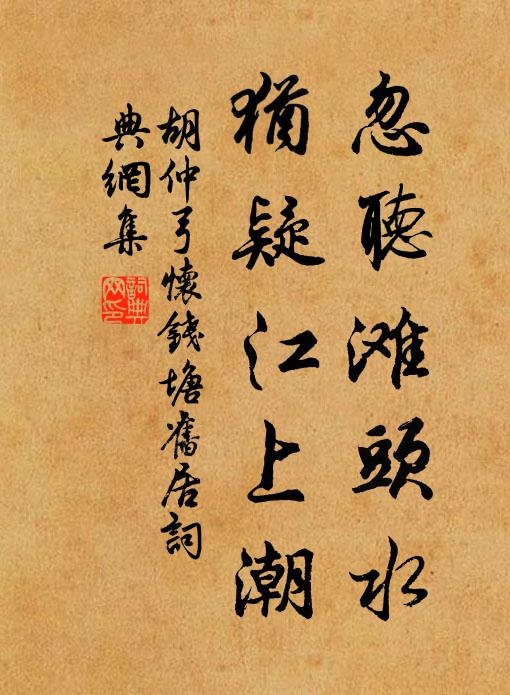 忽聽滩頭水
猶疑江上潮
胡仲弓懷錢塘舊居詞
典網集
詞典
网印